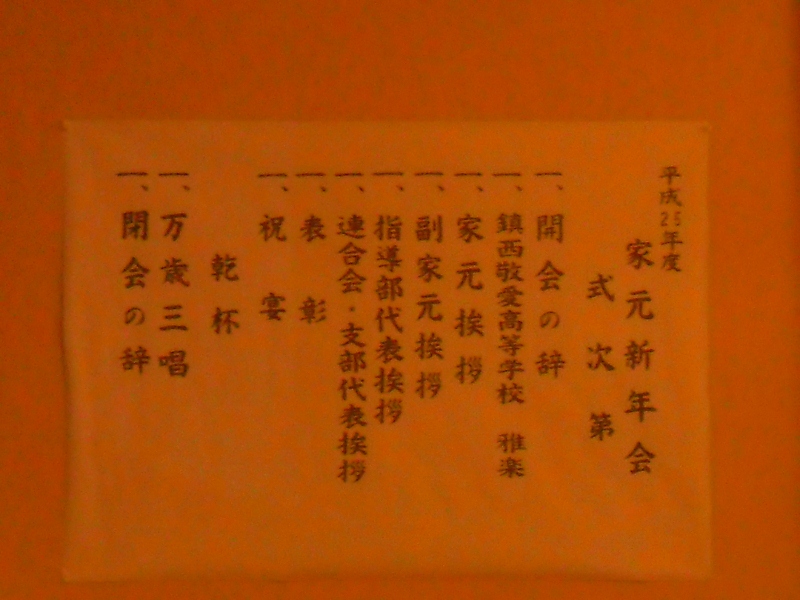 平成25年度
家元新年会
式次第
一、開会の辞
一、鎮西敬愛高等学校 雅楽
一、家元挨拶
一、副家元挨拶
一、指導部代表挨拶
一、連合会・支部代表挨拶
一、表彰
一、祝宴
乾杯
一、万歳三唱
一、閉会の辞